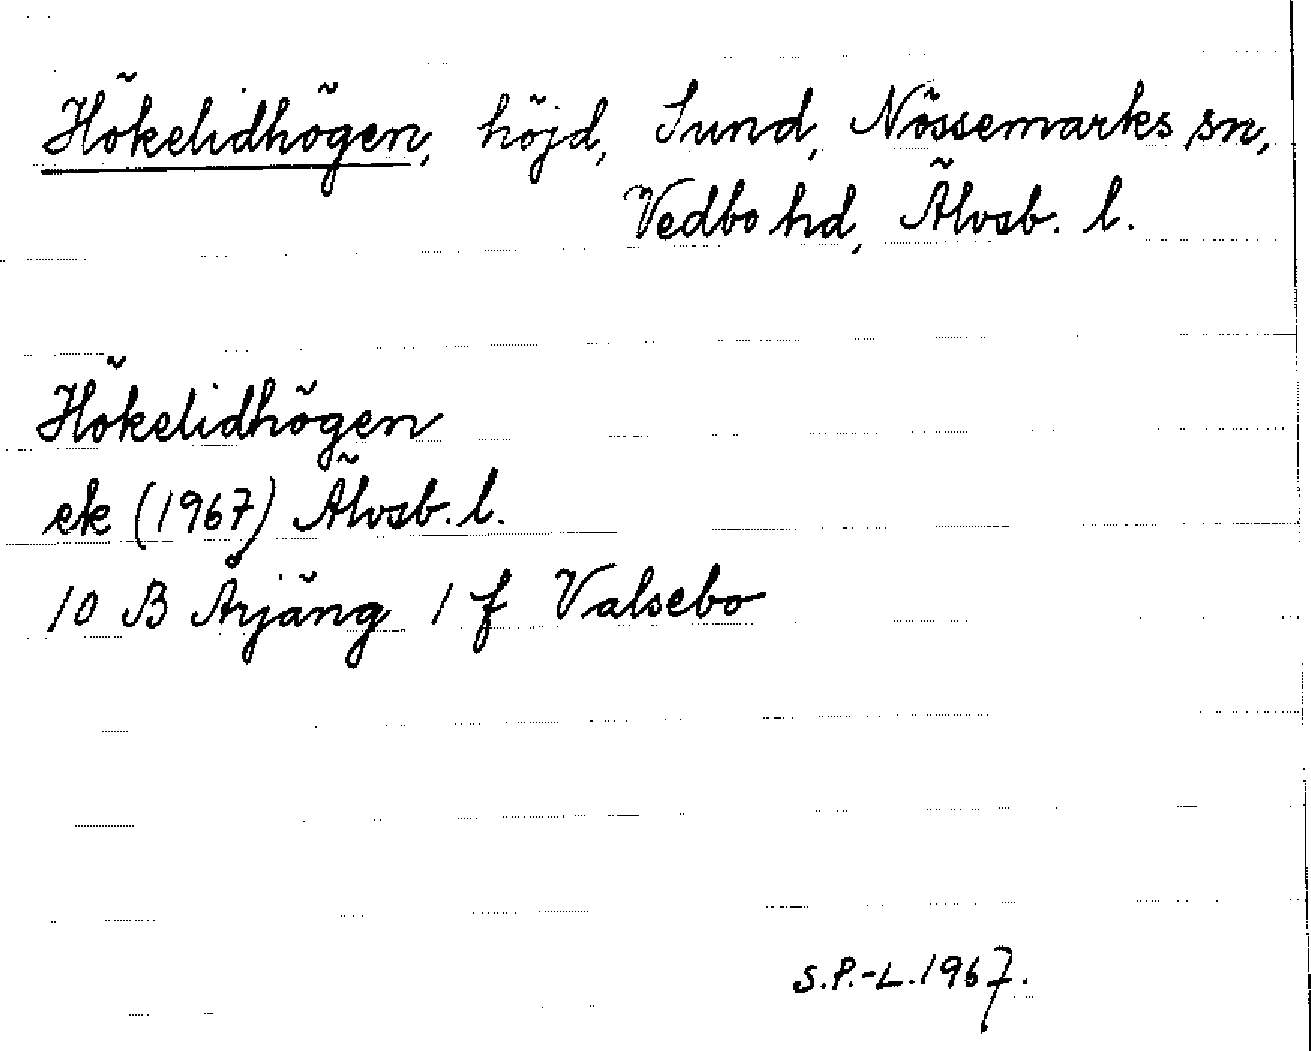 Hökelidhögen, höjd, Sund, Nössemarks sn,
Vedbo hd, Älvsb. l.
Hökelidhögen
ek (1967) Älvsb. l.
10 B Årjäng 1 f Valsebo
S.P.-L. 1967.